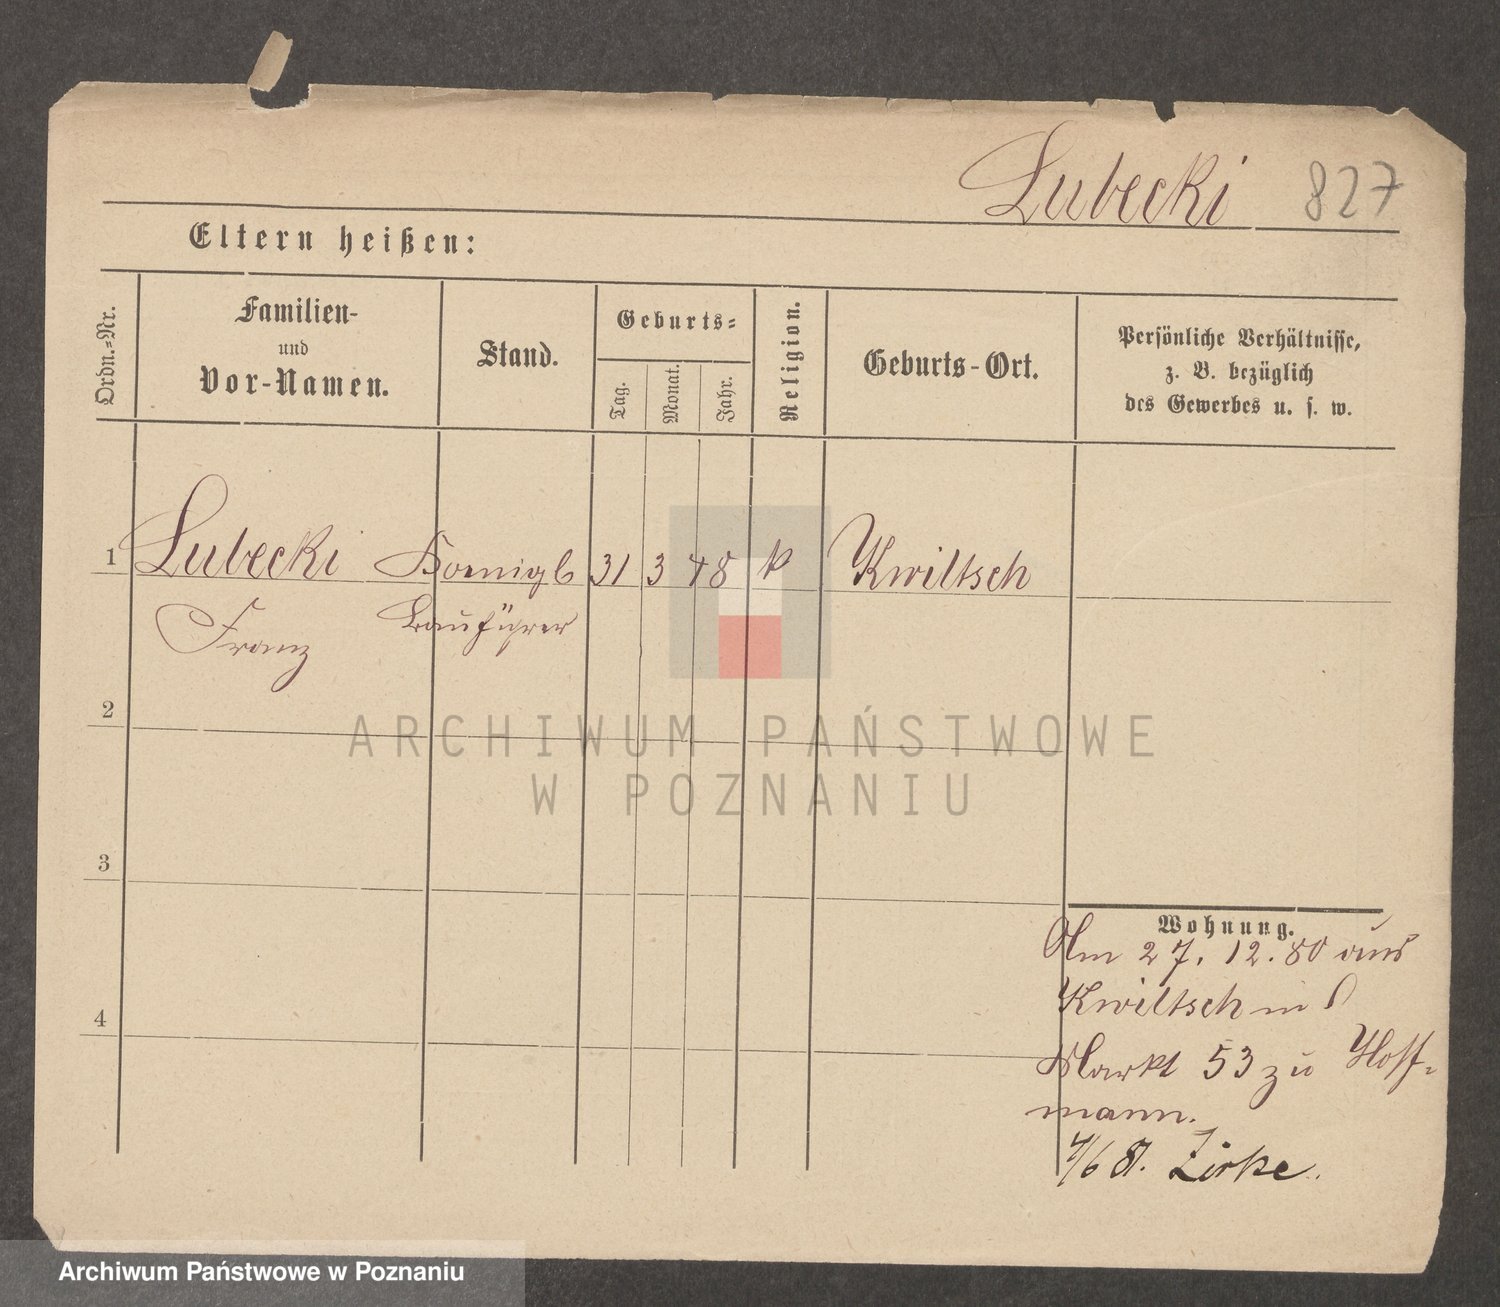 Lubecki 827
Eltern heißen:
Ordn.-Nr.
Familien-
und
Vor-Namen.
Stand.
Geburts-
Tag.
Monat.
Jahr.
Religion.
Geburts-Ort.
Persönliche Verhältnisse,
z. B. bezüglich
des Gewerbes u. s. w.
1 Lubecki Koenigl 31 3 48 k Kwiltsch
Franz Bauführer
2
3
4
Wohnung.
Am 27. 12. 80 aus
Kwiltsch in
Markt 53 zu Hoff-
mann.
81. Zirke.
ARCHIWUM PAŃSTWOWE
W POZNANIU
Archiwum Państwowe w Poznaniu